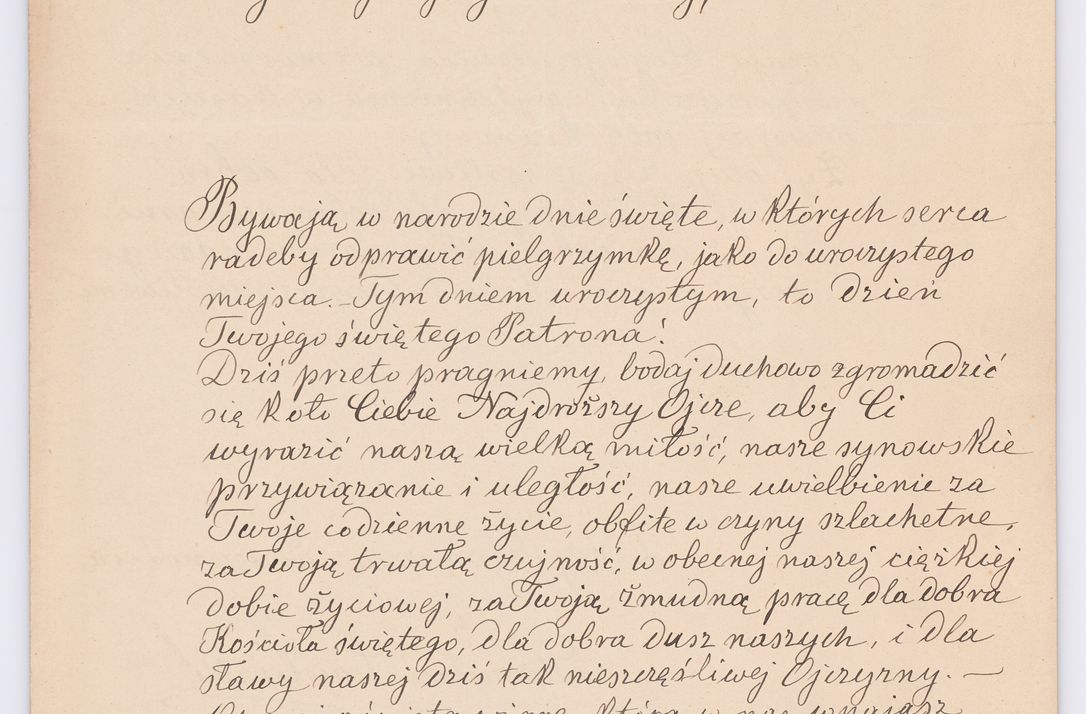 Bywają w narodzie dnie święte, w których serca
radeby odprawić pielgrzymkę, jako do uroczystego
miejsca. – Tym dniem uroczystym, to dzień
Twojego świętego Patrona!
Dziś przeto pragniemy, bodaj duchowo zgromadzić
się koło Ciebie Najdroższy Ojcze, aby Ci
wyrazić naszą wielką miłość, nasze synowskie
przywiązanie i uległość, nasze uwielbienie za
Twoje codzienne życie, obfite w czyny szlachetne,
za Twoją trwałą czujność, w obecnej naszej ciężkiej
dobie życiowej, za Twoją żmudną pracę dla dobra
Kościoła świętego, dla dobra dusz naszych, i dla
sławy naszej dziś tak nieszczęśliwej Ojczyzny. —
która w nas wpajasz